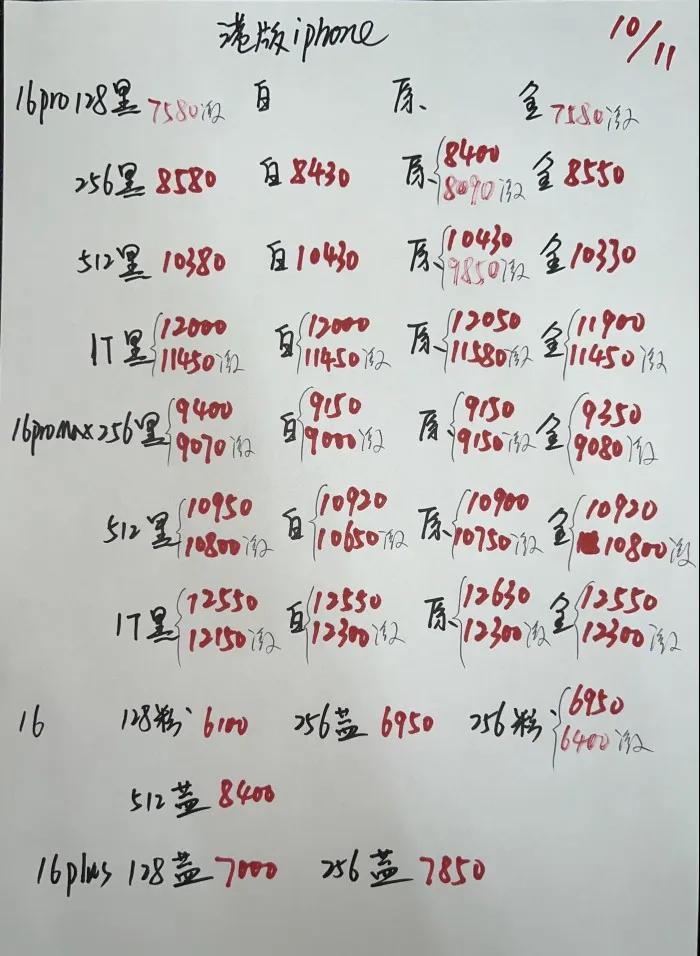 港版iphone 10/11
16pro 128黑 7580激 白 原 金 7580激
256黑 8580 白 8430 原 8400 8090激 金 8550
512黑 10380 白 10430 原 10430 9850激 金 10330
1T黑 12000 11450激 白 12000 11450激 原 12050 11580激 金 11900 11450激
16promax 256黑 9400 9070激 白 9150 9000激 原 9150 9150激 金 9350 9080激
512黑 10950 10800激 白 10920 10650激 原 10900 10750激 金 10920 10800激
1T黑 12550 12150激 白 12550 12300激 原 12630 12300激 金 12550 12300激
16 128粉 6100 256蓝 6950 256粉 6950 6400激
512蓝 8400
16plus 128蓝 7000 256蓝 7850